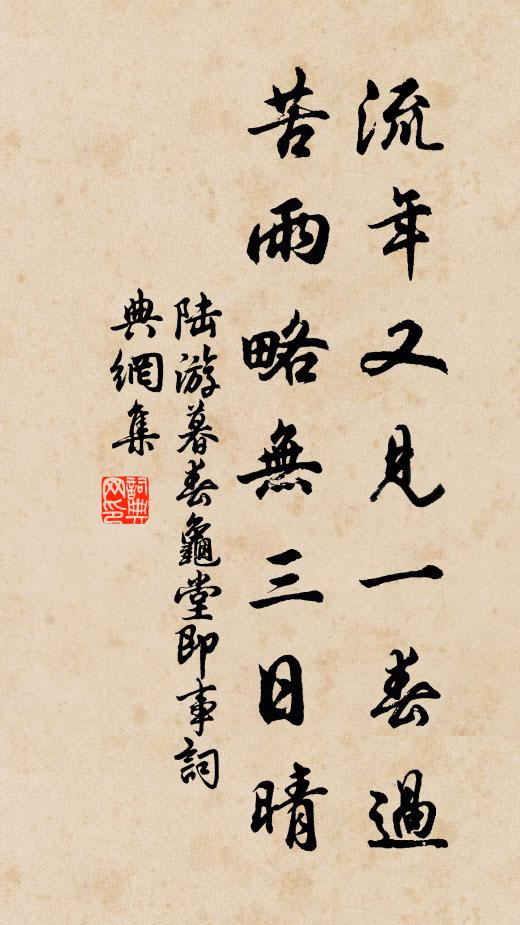 流年又見一春過
苦雨略無三日晴
陸游暮春龜堂即事詞
典網集
詞典網印